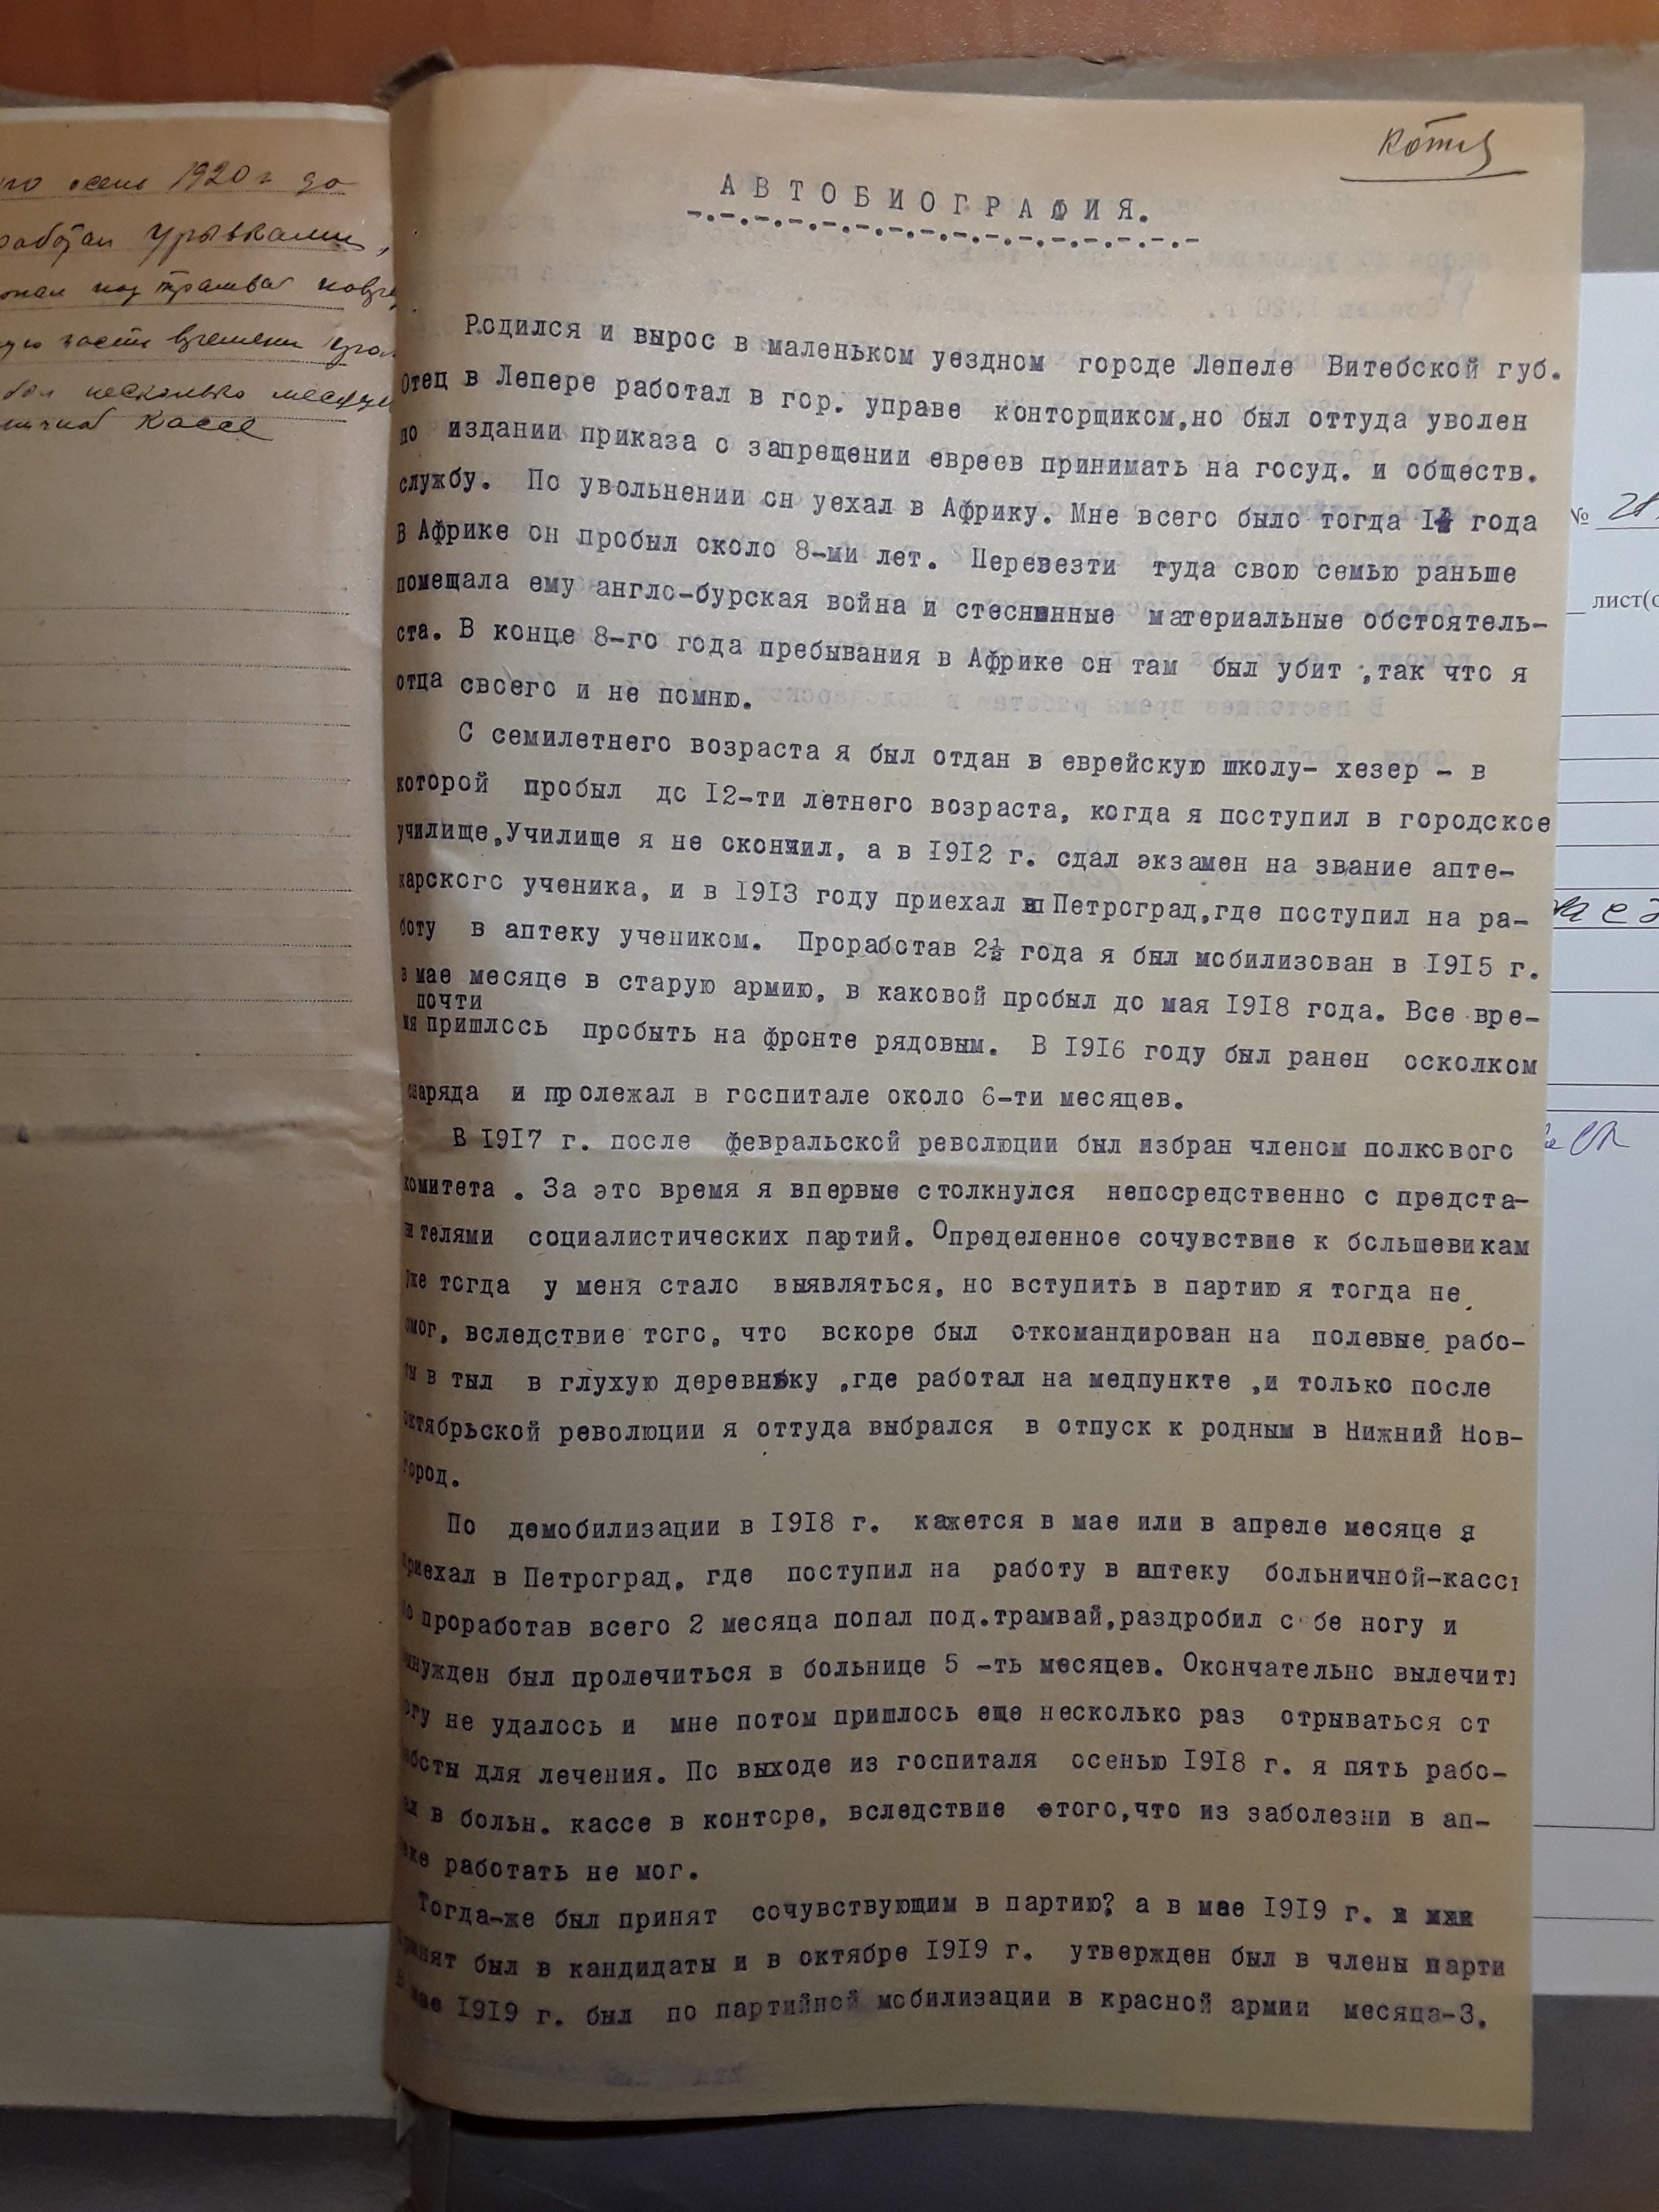 осень 1920 г до
работал урывками,
под трамвай
часть времени
несколько
Кассе
АВТОБИОГРАФИЯ.
-.-.-.-.-.-.-.-.-.-.-.-.-.-.-.-
Родился и вырос в маленьком уездном городе Лепеле Витебской губ.
Отец в Лепере работал в гор. управе конторщиком,но был оттуда уволен
по издании приказа о запрещении евреев принимать на госуд. и обществ.
службу. По увольнении он уехал в Африку. Мне всего было тогда 1½ года
В Африке он пробыл около 8-ми лет. Перевезти туда свою семью раньше
помещала ему англо-бурская война и стесненные материальные обстоятель-
ста. В конце 8-го года пребывания в Африке он там был убит ,так что я
отца своего и не помню.
С семилетнего возраста я был отдан в еврейскую школу- хезер - в
которой пробыл до 12-ти летнего возраста, когда я поступил в городское
училище.Училище я не окончил, а в 1912 г. сдал экзамен на звание апте-
карского ученика, и в 1913 году приехал в Петроград,где поступил на ра-
боту в аптеку учеником. Проработав 2½ года я был мобилизован в 1915 г.
в мае месяце в старую армию, в каковой пробыл до мая 1918 года. Все вре-
почти
мя пришлось пробыть на фронте рядовым. В 1916 году был ранен осколком
снаряда и пролежал в госпитале около 6-ти месяцев.
В 1917 г. после февральской революции был избран членом полкового
комитета . За это время я впервые столкнулся непосредственно с предста-
вителями социалистических партий. Определенное сочувствие к большевикам
уже тогда у меня стало выявляться, но вступить в партию я тогда не
смог, вследствие того, что вскоре был откомандирован на полевые рабо-
ты в тыл в глухую деревньку ,где работал на медпункте ,и только после
октябрьской революции я оттуда выбрался в отпуск к родным в Нижний Нов-
город.
По демобилизации в 1918 г. кажется в мае или в апреле месяце я
приехал в Петроград, где поступил на работу в аптеку больничной-касс
но проработав всего 2 месяца попал под.трамвай,раздробил с бе ногу и
вынужден был пролечиться в больнице 5 -ть месяцев. Окончательно вылечит
ногу не удалось и мне потом пришлось еще несколько раз отрываться от
работы для лечения. По выходе из госпиталя осенью 1918 г. я пять рабо-
ал в больн. кассе в конторе, вследствие етого,что из заболезни в ап-
еке работать не мог.
Тогда-же был принят сочувствующим в партию? а в мае 1919 г.
принят был в кандидаты и в октябре 1919 г. утвержден был в члены парти
В мае 1919 г. был по партийной мобилизации в красной армии месяца-3.
№ 28
лист(о